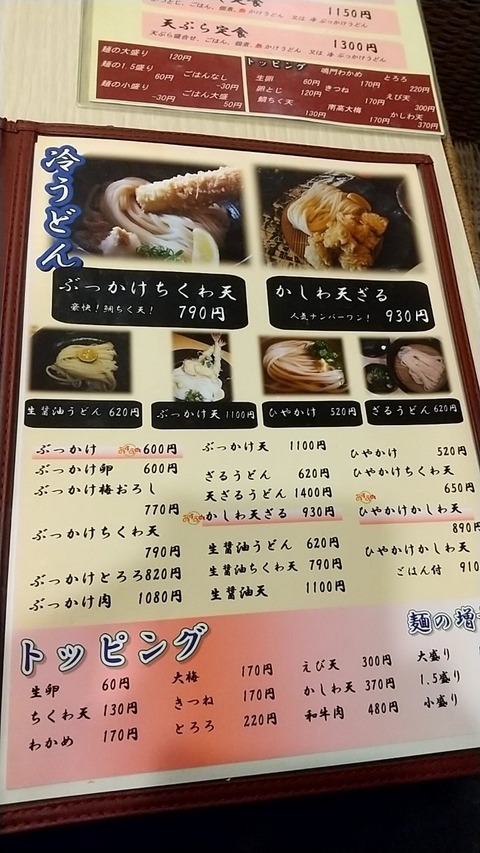 1150円
天ぷら定食
1300円
麺の大盛り 120円
麺の1.5盛り 60円
麺の小盛り -30円
ごはんなし -30円
ごはん大盛 50円
トッピング
生卵 60円
卵とじ 120円
鯛ちく天 130円
鳴門わかめ 170円
きつね 170円
南高大梅 170円
とろろ 220円
えび天 300円
かしわ天 370円
冷うどん
ぶっかけちくわ天
豪快!鯛ちく天! 790円
かしわ天ざる
人気ナンバーワン! 930円
生醤油うどん 620円
ぶっかけ天 1100円
ひやかけ 520円
ざるうどん 620円
ぶっかけ おすすめ 600円
ぶっかけ卵 600円
ぶっかけ梅おろし
770円
ぶっかけちくわ天
790円
ぶっかけとろろ 820円
ぶっかけ肉 1080円
ぶっかけ天 1100円
ざるうどん 620円
天ざるうどん 1400円
おすすめ かしわ天ざる 930円
生醤油うどん 620円
生醤油ちくわ天 790円
生醤油天 1100円
ひやかけ 520円
ひやかけちくわ天
650円
おすすめ ひやかけかしわ天
890円
ひやかけかしわ天
ごはん付 910
トッピング
生卵 60円
ちくわ天 130円
わかめ 170円
大梅 170円
きつね 170円
とろろ 220円
えび天 300円
かしわ天 370円
和牛肉 480円
麺の増
大盛り
1.5盛り
小盛り